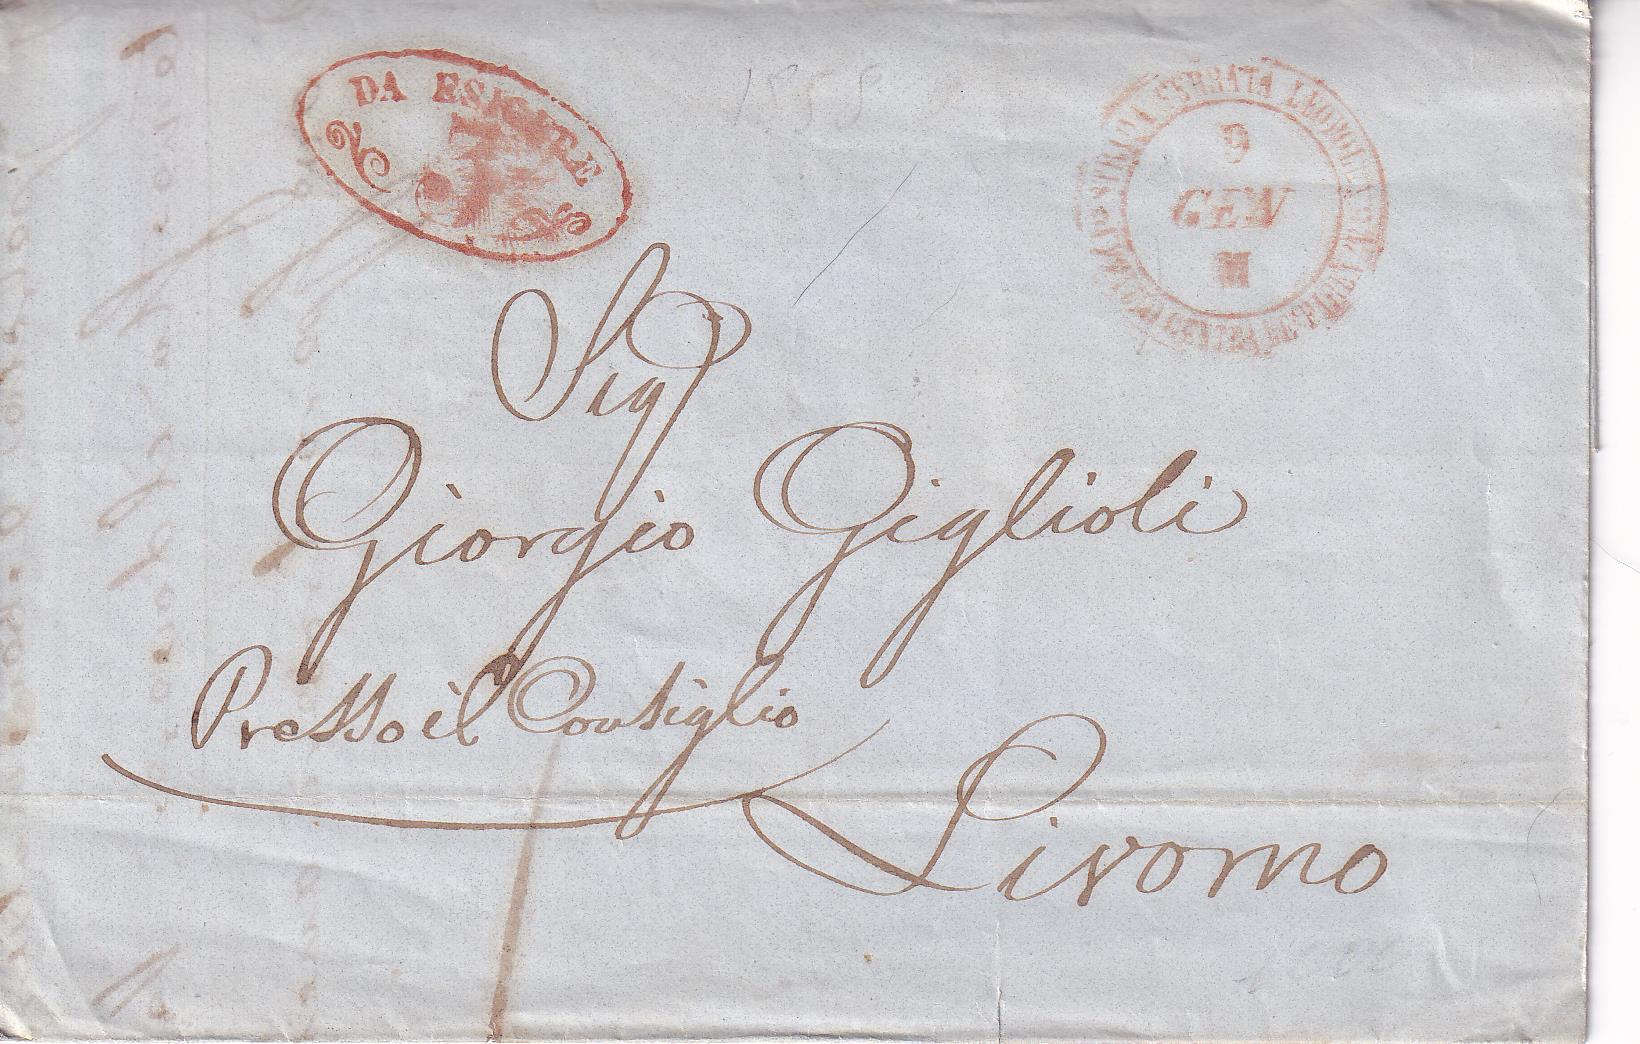 DA ESIGERE
1855
STRADA FERRATA LEOPOLDA
9
GEN
Sig
Giorgio Giglioli
Presso il Consiglio
Livorno